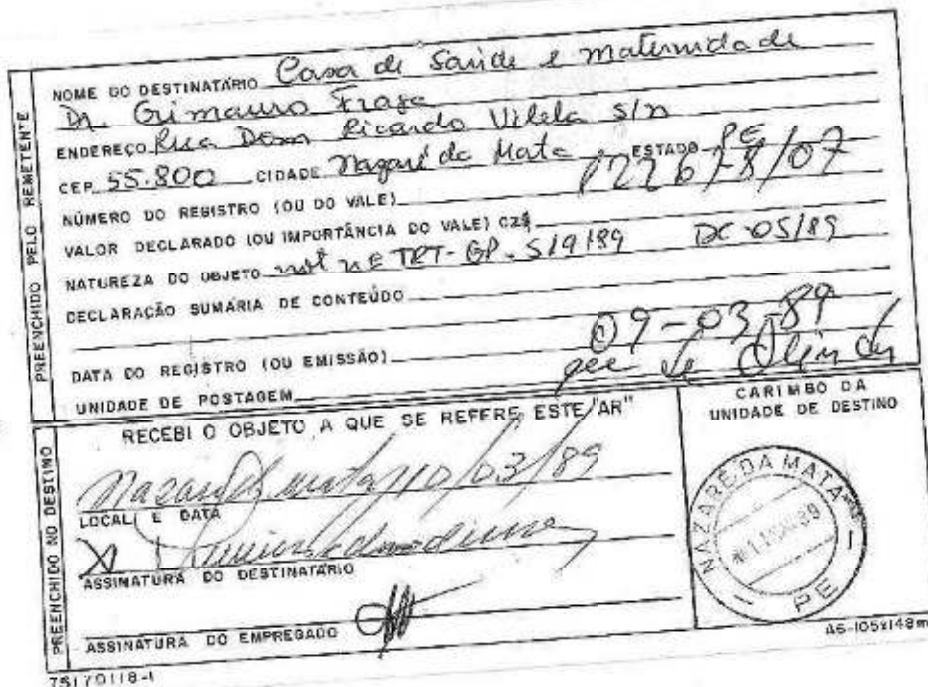 PREENCHIDO PELO REMETENTE
NOME DO DESTINATÁRIO Casa de Saúde e Maternidade
Dr. Grimauro Fraga
ENDEREÇO Rua Dom Ricardo Vilela s/n
CEP 55.800 CIDADE Nazaré da Mata ESTADO PE
NÚMERO DO REGISTRO (OU DO VALE)
VALOR DECLARADO (OU IMPORTÂNCIA DO VALE) CZ$
NATUREZA DO OBJETO not nº TRT-GP-519/89 DC-05/89
DECLARAÇÃO SUMÁRIA DE CONTEÚDO
DATA DO REGISTRO (OU EMISSÃO) 09-03-89
UNIDADE DE POSTAGEM
PREENCHIDO NO DESTINO
RECEBI O OBJETO A QUE SE REFERE ESTE "AR"
Nazaré da mata, 10/03/89
LOCAL E DATA
X
ASSINATURA DO DESTINATÁRIO
ASSINATURA DO EMPREGADO
CARIMBO DA
UNIDADE DE DESTINO
NAZARÉ DA MATA
PE
75170118-1
A6-105x148m